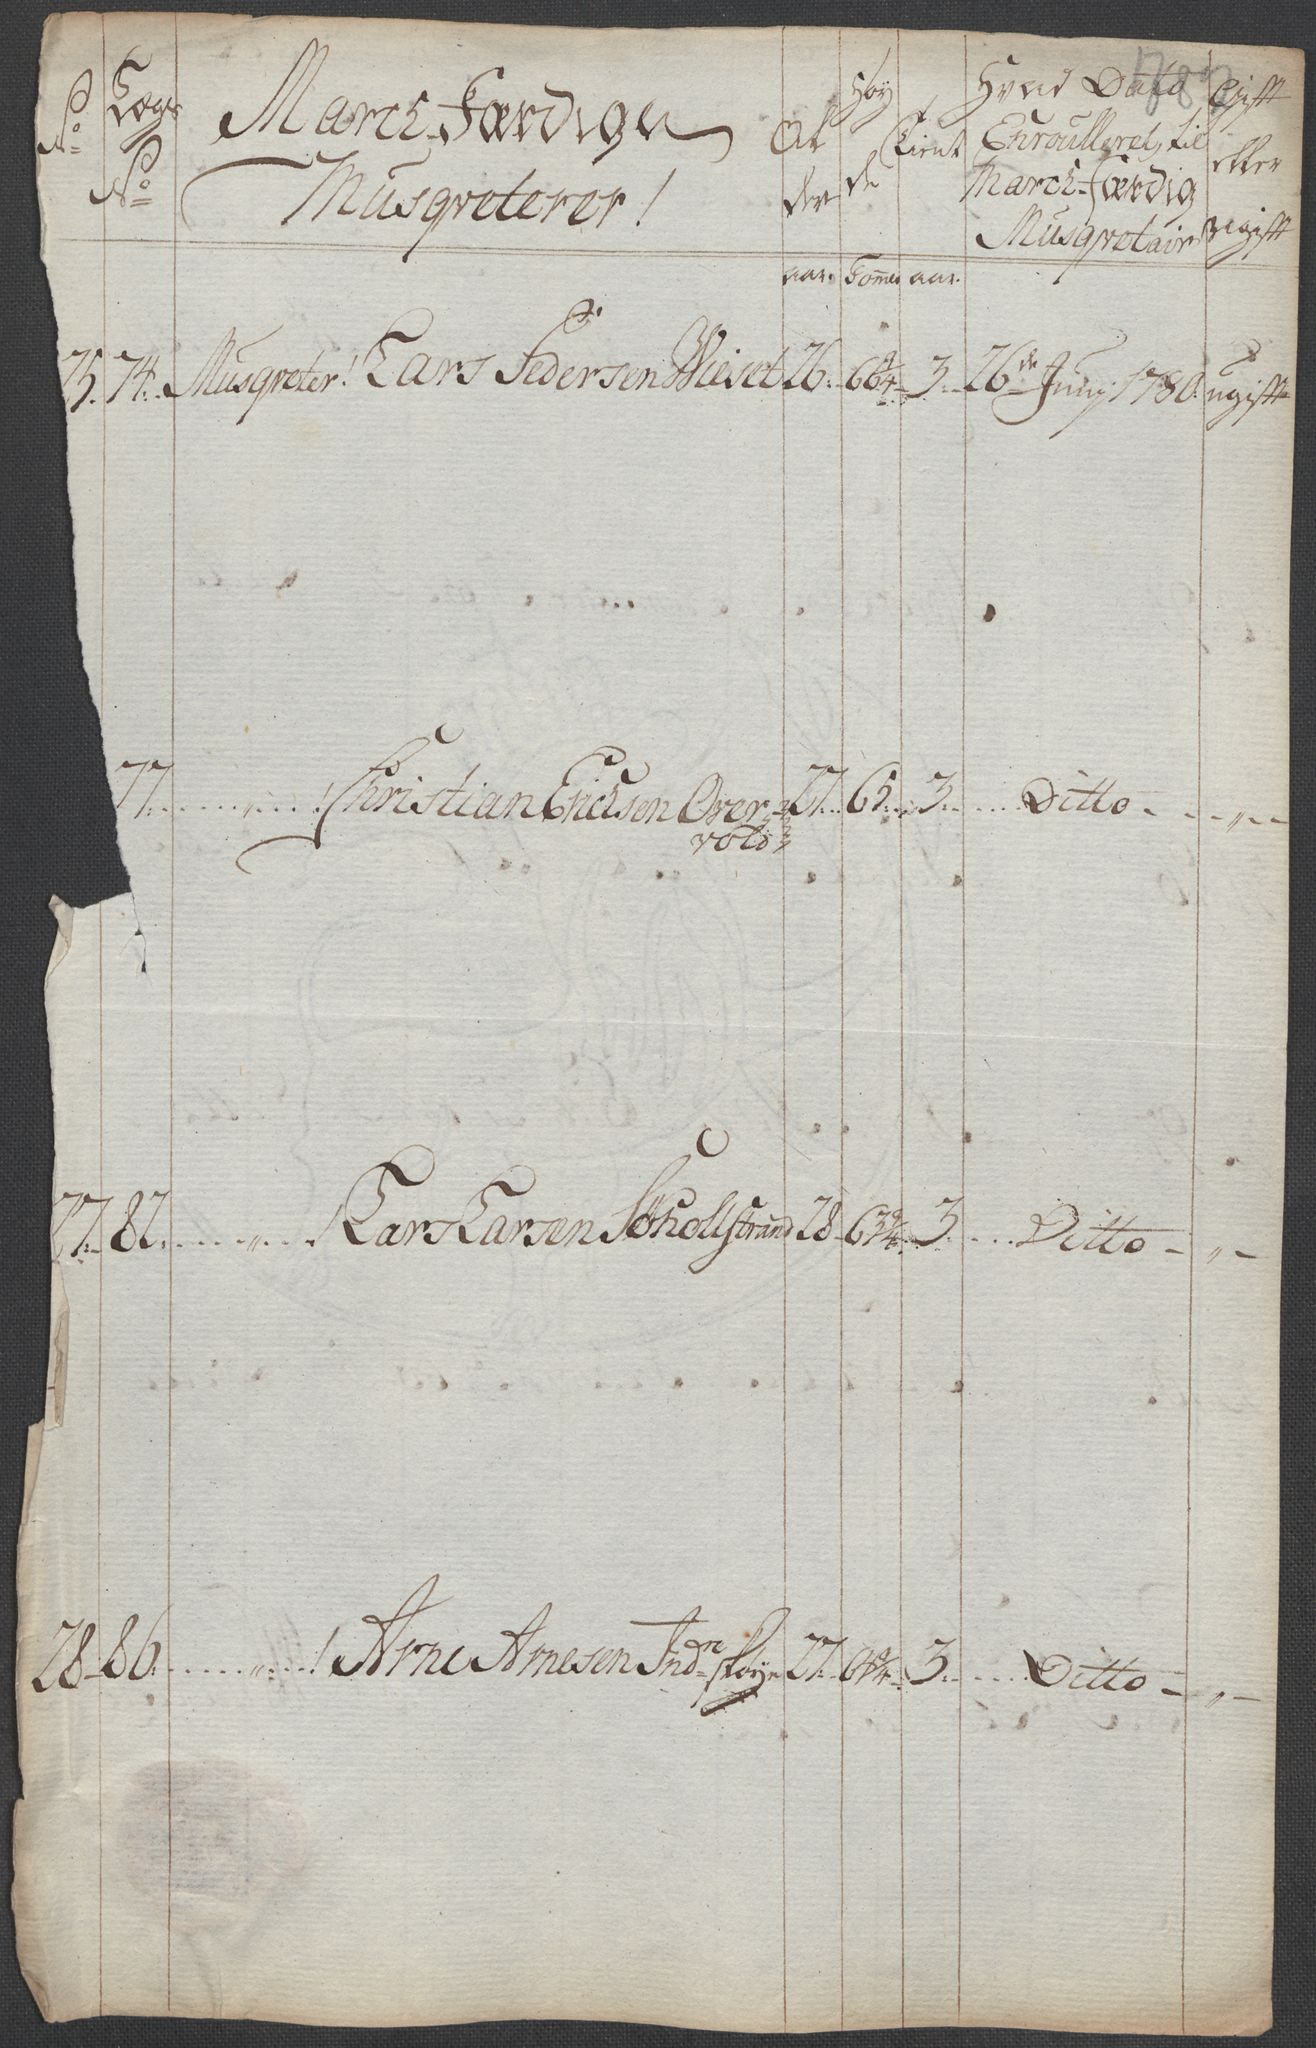 No
Lægs
No
March-Færdige
Musqveterer!
Al
der
Høy
de
Tient
Hvad Dato
Enroulleret, til
March-Færdig
Musqvetair
Gift
eller
ugift
aar.
Tomme
aar.
75. 74. Musqveter! Lars Pedersen Wieset 26. 3. 26de Junj 1780. ugift
77. „ ! Christian Erichsen Over-
vold 27. 65. 3. Ditto - „ -
27. 82. „ Lars Larsen Søholtstrand 28 3. Ditto - „ -
28 86. „ ! Arne Arnesen Indre
skoye 27. 3. Ditto - „ -